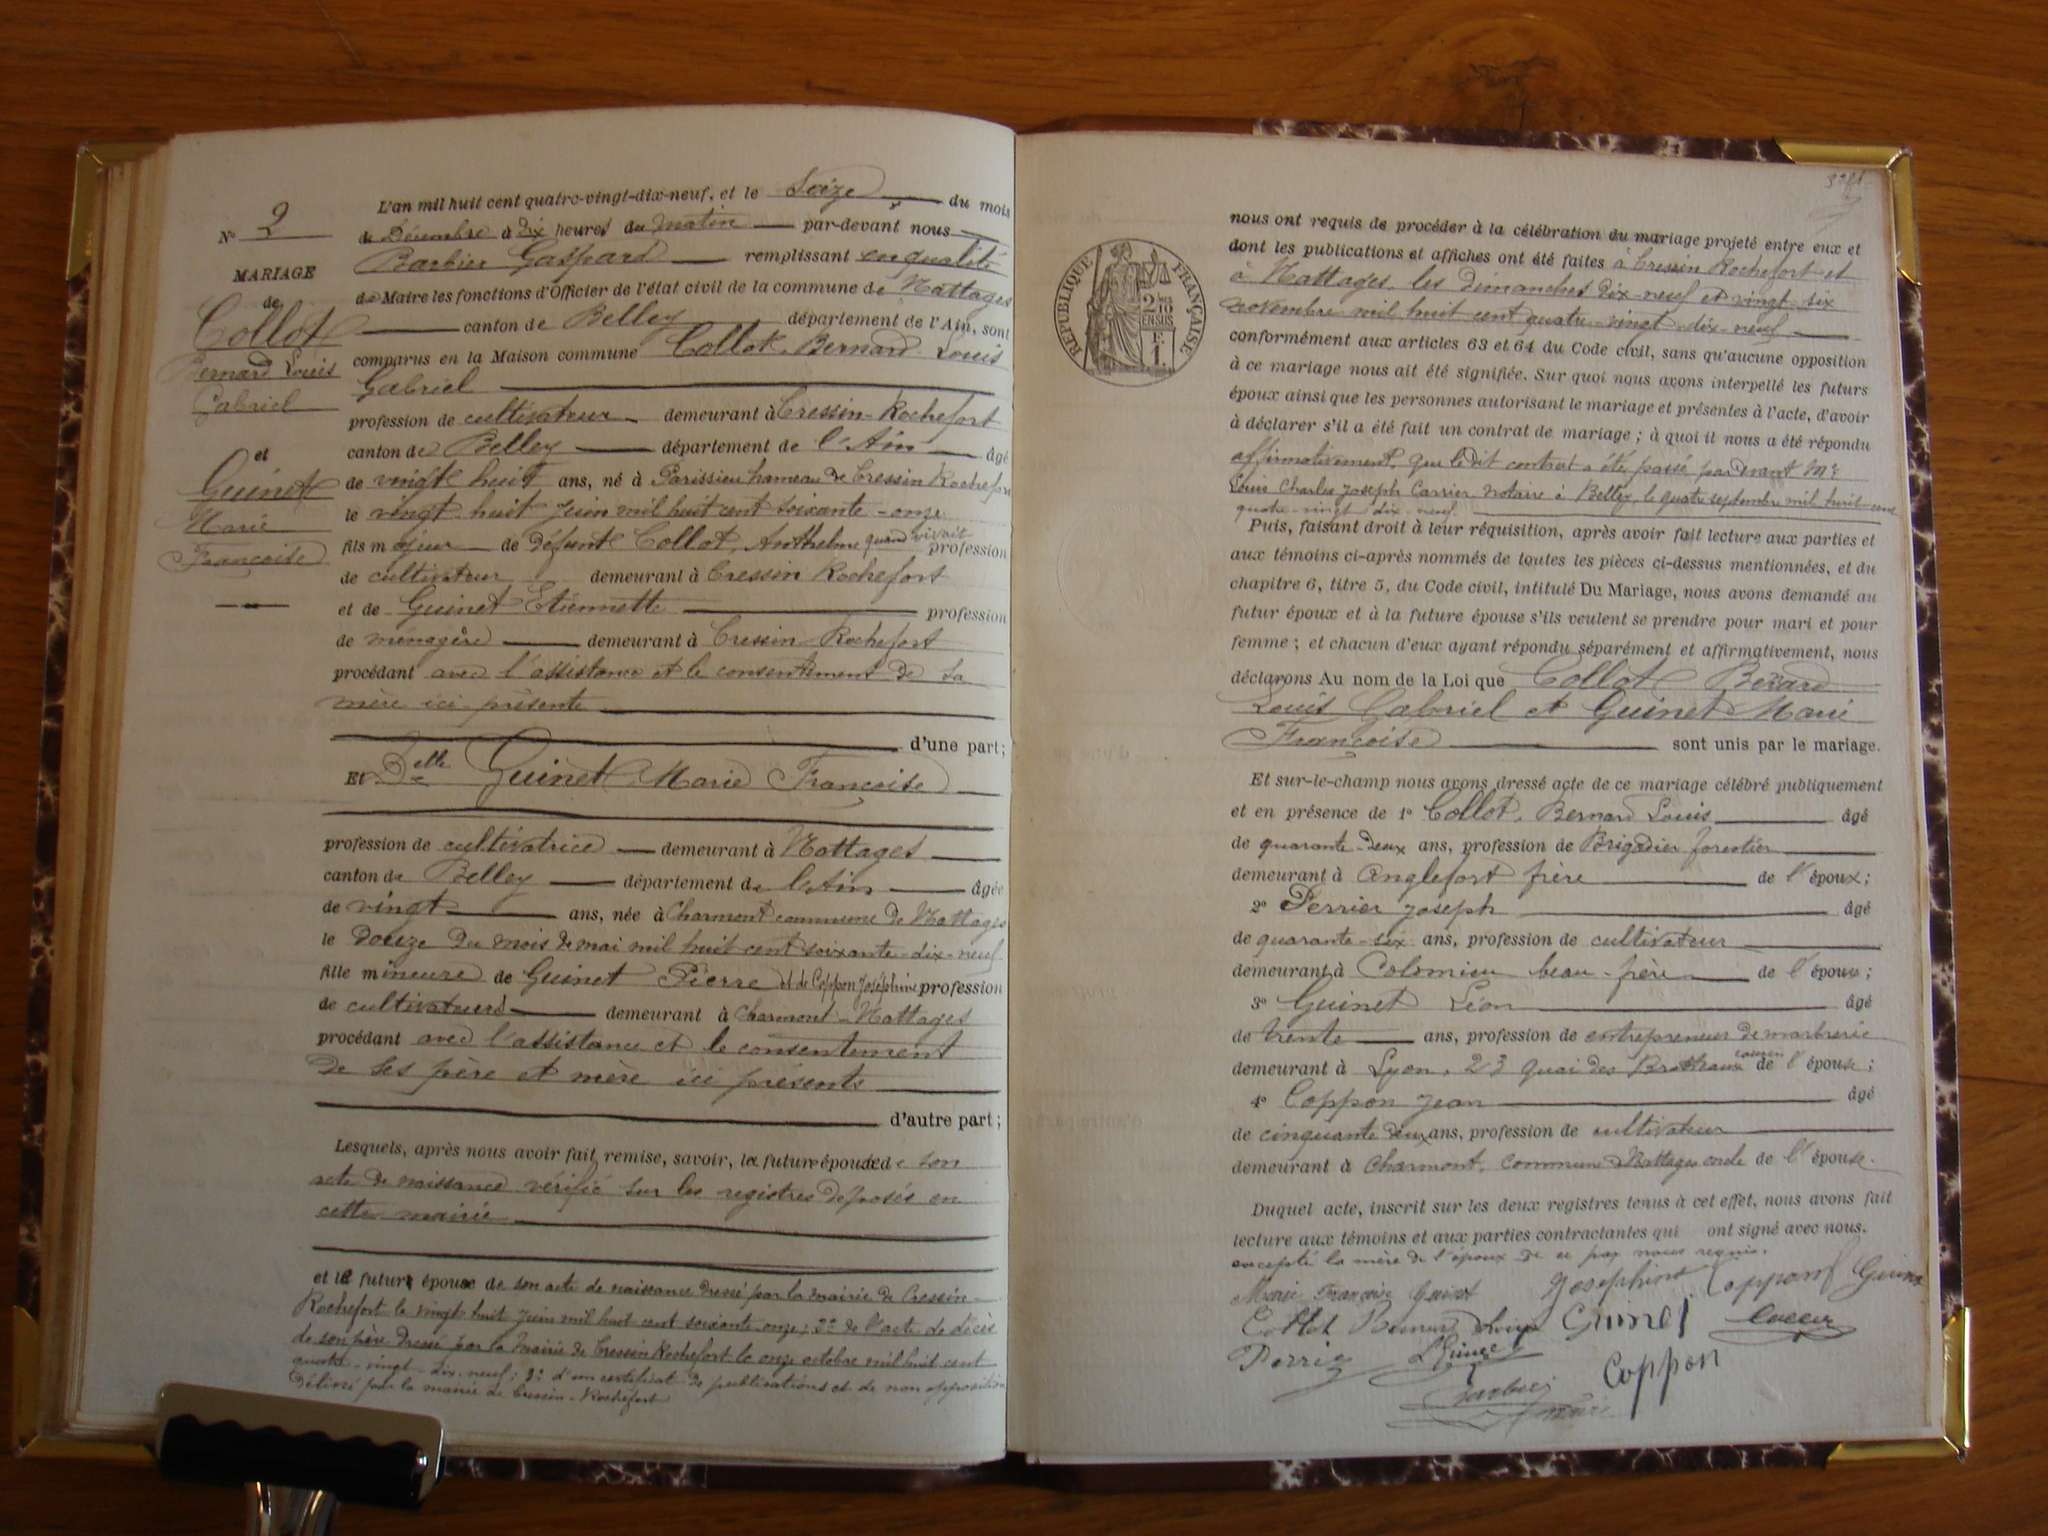 N° 9
MARIAGE
de
Collot
Bernard Louis
Gabriel
et
Guinet
Marie
Françoise
L'an mil huit cent quatre-vingt-dix-neuf, et le Seize du mois
de Décembre à dix heures du matin par-devant nous
Barbier Gaspard remplissant en qualité
de Maire les fonctions d'Officier de l'état civil de la commune de Nattages
canton de Belley département de l'Ain, sont
comparus en la Maison commune Collot Bernard Louis
Gabriel
profession de cultivateur demeurant à Cressin-Rochefort
canton de Belley département de l'Ain âgé
de vingt huit ans, né à Parissieu hameau de Cressin Rochefort
le vingt-huit Juin mil huit cent soixante-onze
fils majeur de défunt Collot, Anthelme quand vivait profession
de cultivateur demeurant à Cressin Rochefort
et de Guinet Etiennette profession
de menagère demeurant à Cressin-Rochefort
procédant avec l'assistance et le consentement de sa
mère ici présente
d'une part;
Et Delle Guinet Marie Françoise
profession de cultivatrice demeurant à Nattages
canton de Belley département de l'Ain âgée
de vingt ans, née à Charmont commune de Nattages
le douze du mois de mai mil huit cent soixante-dix-neuf
fille mineure de Guinet Pierre et de Coppon Joséphine profession
de cultivateurs demeurant à Charmont-Nattages
procédant avec l'assistance et le consentement
de ses père et mère ici présents
d'autre part;
Lesquels, après nous avoir fait remise, savoir, la future épouse de son
acte de naissance vérifié sur les registres déposés en
cette mairie
et le futur époux de son acte de naissance dressé par la mairie de Cressin-
Rochefort le vingt huit Juin mil huit cent soixante-onze; 2° de l'acte de décès
de son père dressé par la Mairie de Cressin Rochefort le onze octobre mil huit cent
quatre-vingt-dix-neuf; 3° d'un certificat de publications et de non opposition
délivré par la mairie de Cressin-Rochefort
RÉPUBLIQUE FRANÇAISE
2/10 EN SUS
F. 1.
nous ont requis de procéder à la célébration du mariage projeté entre eux et
dont les publications et affiches ont été faites à Cressin Rochefort et
à Nattages les dimanches dix-neuf et vingt-six
novembre mil huit cent quatre-vingt-dix-neuf
conformément aux articles 63 et 64 du Code civil, sans qu'aucune opposition
à ce mariage nous ait été signifiée. Sur quoi nous avons interpellé les futurs
époux ainsi que les personnes autorisant le mariage et présentes à l'acte, d'avoir
à déclarer s'il a été fait un contrat de mariage; à quoi il nous a été répondu
affirmativement, que ledit contrat a été passé par devant Me
Louis Charles Joseph Carrier notaire à Belley le quatre septembre mil huit cent
quatre-vingt dix-neuf
Puis, faisant droit à leur réquisition, après avoir fait lecture aux parties et
aux témoins ci-après nommés de toutes les pièces ci-dessus mentionnées, et du
chapitre 6, titre 5, du Code civil, intitulé Du Mariage, nous avons demandé au
futur époux et à la future épouse s'ils veulent se prendre pour mari et pour
femme; et chacun d'eux ayant répondu séparément et affirmativement, nous
déclarons Au nom de la Loi que Collot
Louis Gabriel et Guinet Marie
Françoise sont unis par le mariage.
Et sur-le-champ nous avons dressé acte de ce mariage célébré publiquement
et en présence de 1° Collot, Bernard Louis âgé
de quarante-deux ans, profession de Brigadier forestier
demeurant à Anglefort frère de l'époux;
2° Perrier Joseph âgé
de quarante-six ans, profession de cultivateur
demeurant à Colomieu beau-frère de l'époux;
3° Guinet Léon âgé
de trente ans, profession de entrepreneur de marbrerie
demeurant à Lyon, 23 quai des Brotteaux cousin de l'épouse;
4° Coppon Jean âgé
de cinquante deux ans, profession de cultivateur
demeurant à Charmont, commune Nattages oncle de l'épouse.
Duquel acte, inscrit sur les deux registres tenus à cet effet, nous avons fait
lecture aux témoins et aux parties contractantes qui ont signé avec nous.
excepté la mère de l'époux de ce par nous requis.
Marie Françoise Guinet Joséphine Coppon f Guinet
Collot Bernard Guinet Collot
Perrier LGuinet Coppon
Barbier
maire